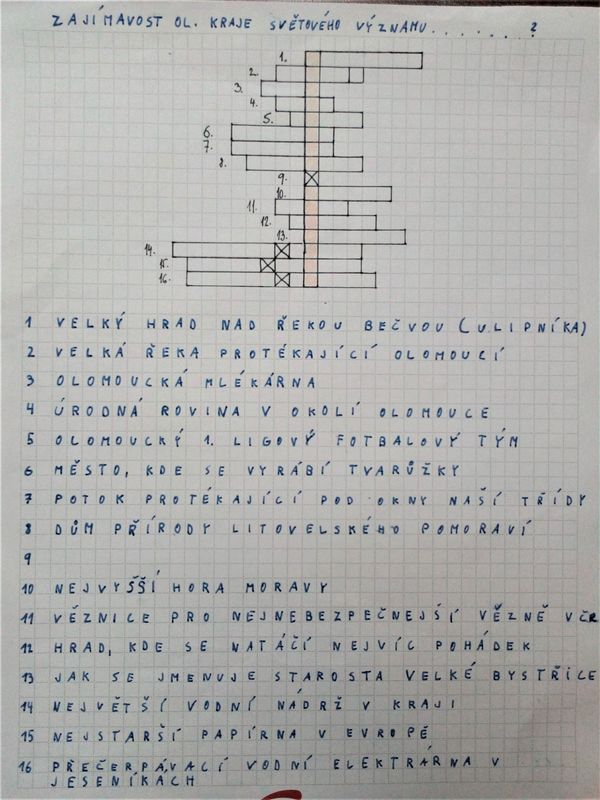 ZAJÍMAVOST OL. KRAJE SVĚTOVÉHO VÝZNAMU.......?
1.
2.
3.
4.
5.
6.
7.
8.
9.
10.
11.
12.
13.
14.
15.
16.
1 VELKÝ HRAD NAD ŘEKOU BEČVOU (U LIPNÍKA)
2 VELKÁ ŘEKA PROTÉKAJÍCÍ OLOMOUCÍ
3 OLOMOUCKÁ MLÉKÁRNA
4 ÚRODNÁ ROVINA V OKOLÍ OLOMOUCE
5 OLOMOUCKÝ 1. LIGOVÝ FOTBALOVÝ TÝM
6 MĚSTO, KDE SE VYRÁBÍ TVARŮŽKY
7 POTOK PROTÉKAJÍCÍ POD OKNY NAŠÍ TŘÍDY
8 DŮM PŘÍRODY LITOVELSKÉHO POMORAVÍ
9
10 NEJVYŠŠÍ HORA MORAVY
11 VĚZNICE PRO NEJNEBEZPEČNEJŠÍ VĚZNĚ V ČR
12 HRAD, KDE SE NATÁČÍ NEJVÍC POHÁDEK
13 JAK SE JMENUJE STAROSTA VELKÉ BYSTŘICE
14 NEJVĚTŠÍ VODNÍ NÁDRŽ V KRAJI
15 NEJSTARŠÍ PAPÍRNA V EVROPĚ
16 PŘEČERPÁVACÍ VODNÍ ELEKTRÁRNA V
JESENÍKÁCH